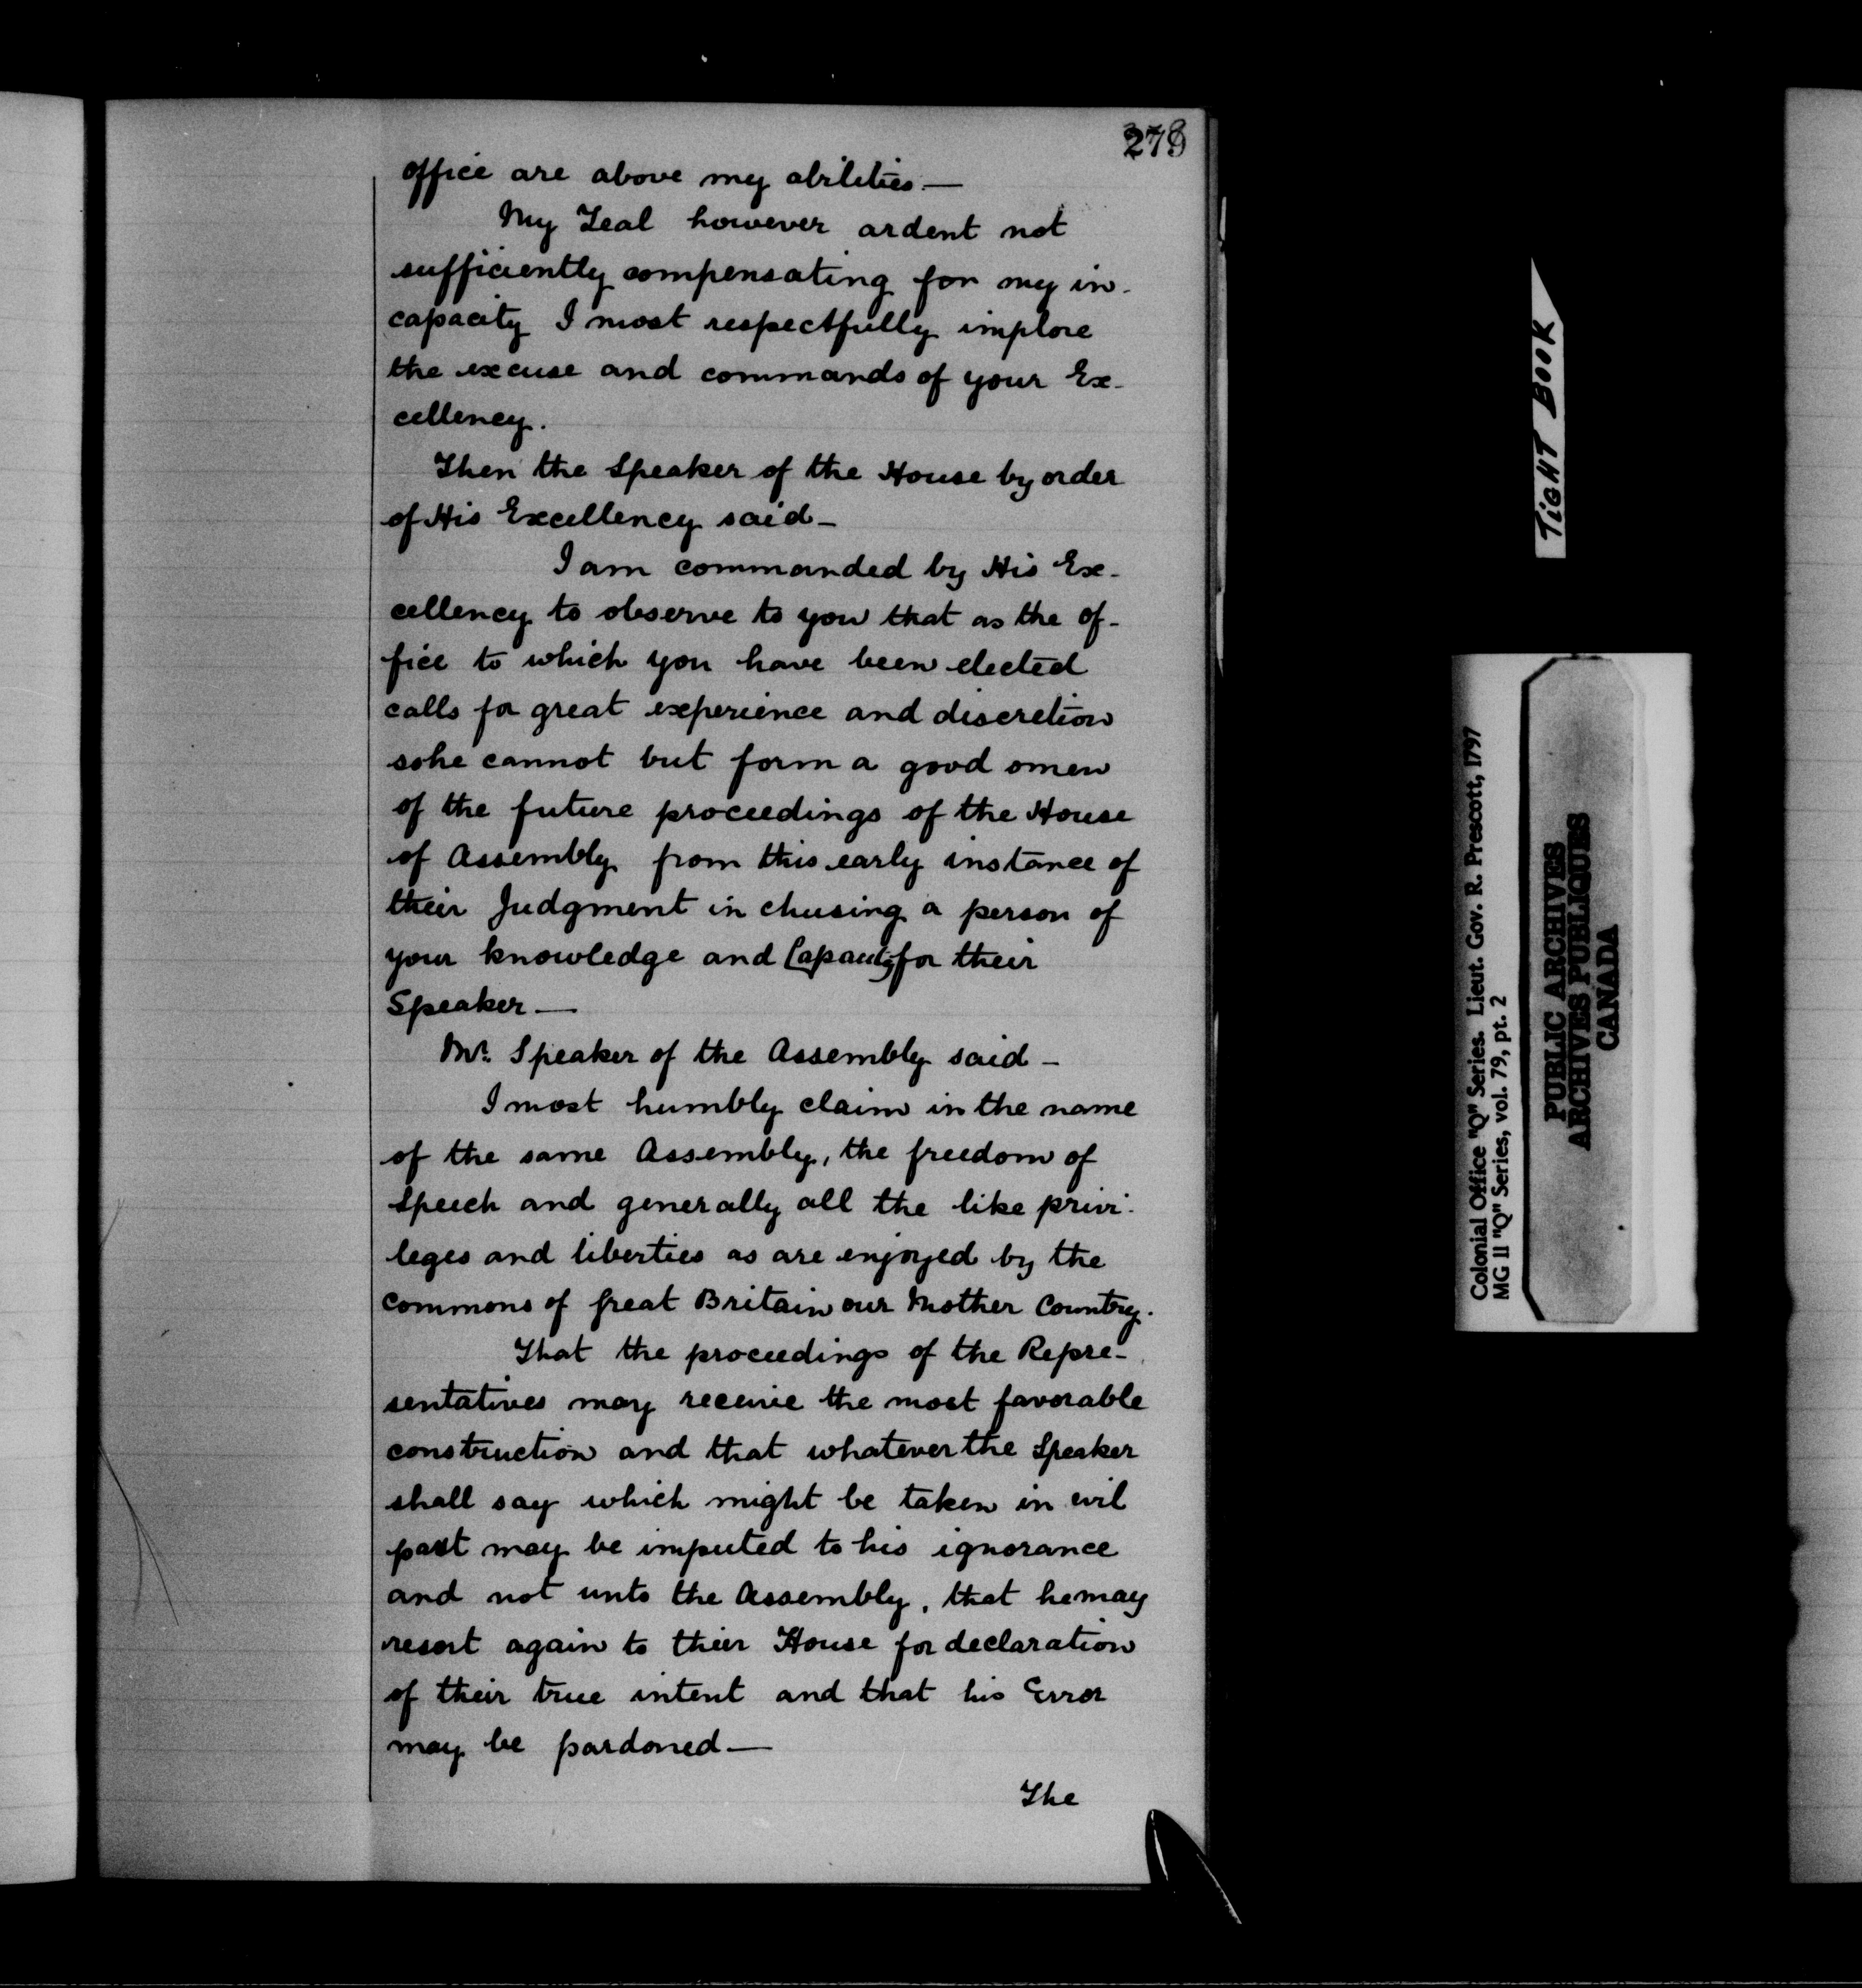 office are above my abilities —
My Zeal however ardent not
sufficiently compensating for my in-
capacity I most respectfully implore
the excuse and commands of your Ex-
cellency.
Then the Speaker of the House by order
of His Excellency said —
I am commanded by His Ex-
cellency to observe to you that as the of-
fice to which you have been elected
calls for great experience and discretion
so he cannot but form a good omen
of the future proceedings of the House
of Assembly from this early instance of
their Judgment in chusing a person of
your knowledge and Capacity for their
Speaker —
Mr. Speaker of the Assembly said —
I most humbly claim in the name
of the same Assembly, the freedom of
Speech and generally all the like privi-
leges and liberties as are enjoyed by the
Commons of Great Britain our Mother Country.
That the proceedings of the Repre-
sentatives may receive the most favorable
construction and that whatever the Speaker
shall say which might be taken in evil
part may be imputed to his ignorance
and not unto the Assembly, that he may
resort again to their House for declaration
of their true intent and that his Error
may be pardoned —
The
TIGHT BOOK
Colonial Office "Q" Series. Lieut. Gov. R. Prescott, 1797
MG 11 "Q" Series, vol. 79, pt. 2
PUBLIC ARCHIVES
ARCHIVES PUBLIQUES
CANADA